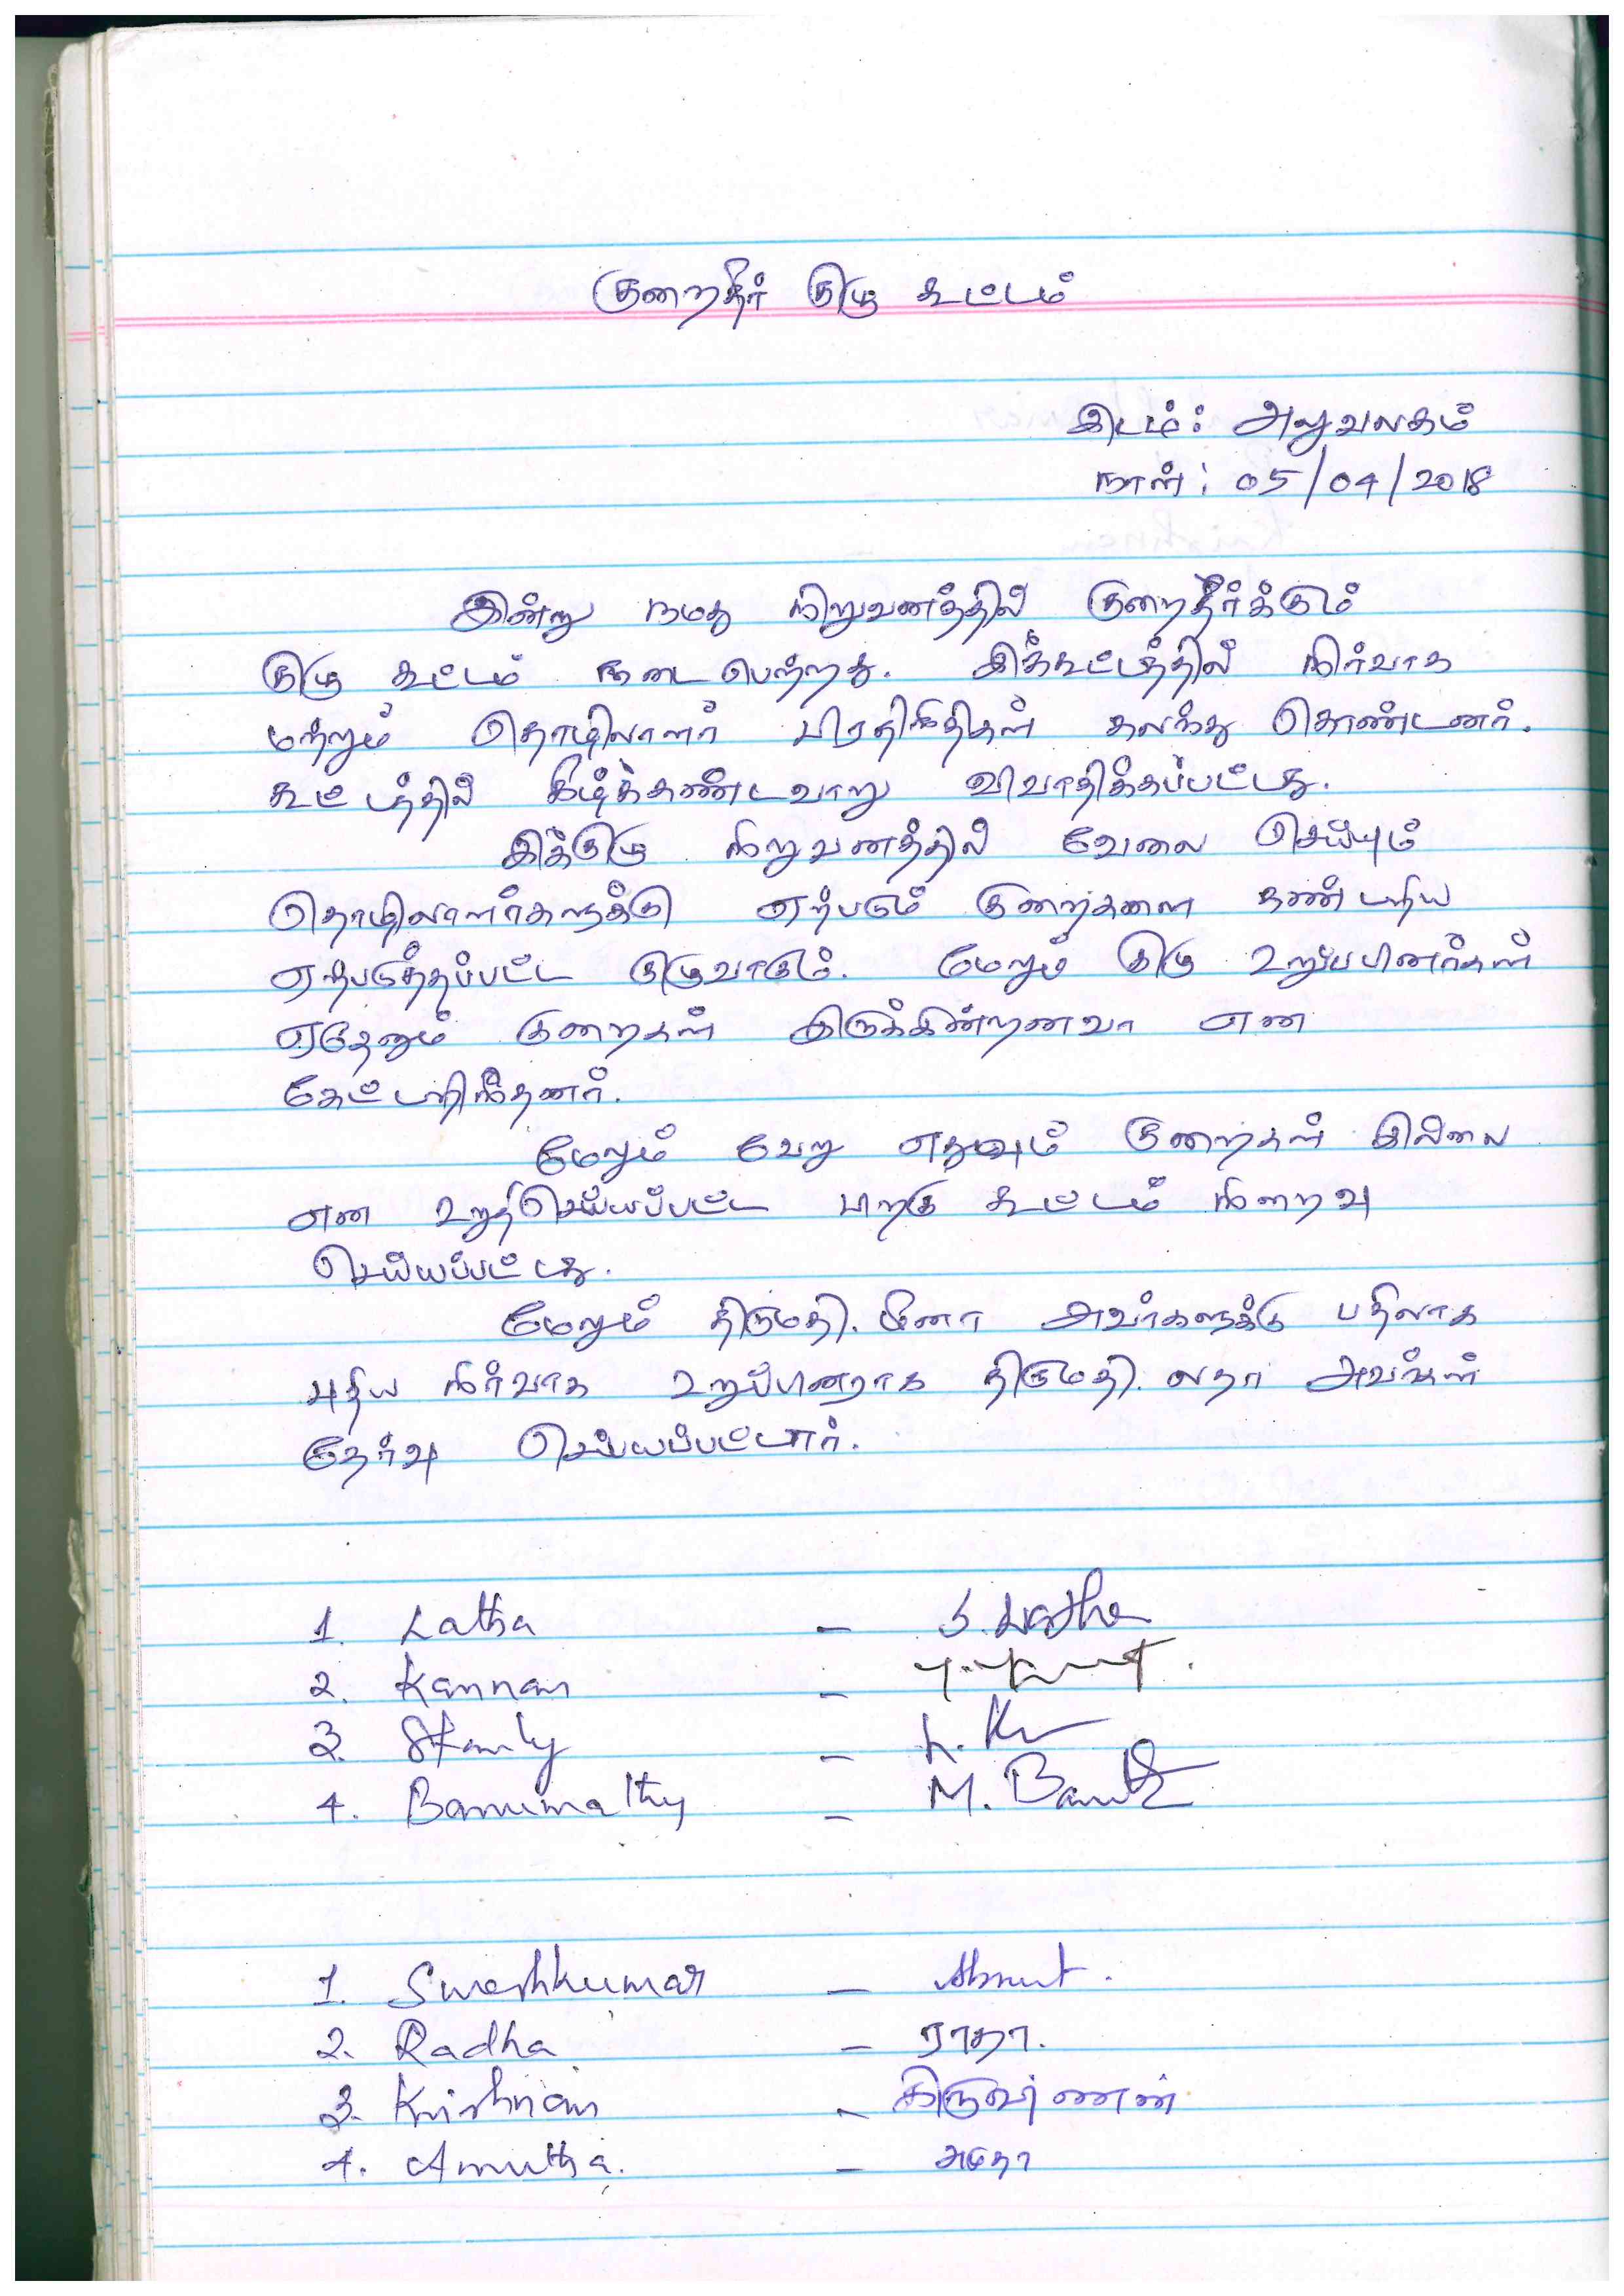 குறைதீர் குழு கூட்டம்
இடம்: அலுவலகம்
நாள்: 05/04/2018
இன்று நமது நிறுவனத்தில் குறைதீர்க்கும்
குழு கூட்டம் நடைபெற்றது. இக்கூட்டத்தில் நிர்வாக
மற்றும் தொழிலாளர் பிரதிநிதிகள் கலந்து கொண்டனர்.
கூட்டத்தில் கீழ்க்கண்டவாறு விவாதிக்கப்பட்டது.
இக்குழு நிறுவனத்தில் வேலை செய்யும்
தொழிலாளர்களுக்கு ஏற்படும் குறைகளை கண்டறிய
ஏற்படுத்தப்பட்ட குழுவாகும். மேலும் குழு உறுப்பினர்கள்
ஏதேனும் குறைகள் இருக்கின்றனவா என
கேட்டறிந்தனர்.
மேலும் வேறு எதுவும் குறைகள் இல்லை
என உறுதிசெய்யப்பட்ட பிறகு கூட்டம் நிறைவு
செய்யப்பட்டது.
மேலும் திருமதி. மீனா அவர்களுக்கு பதிலாக
புதிய நிர்வாக உறுப்பினராக திருமதி. லதா அவர்கள்
தேர்வு செய்யப்பட்டார்.
1. Latha - S. Latha
2. Kannan -
3. Stanly -
4. Banumathy - M. Banu
1. Sureshkumar -
2. Radha - ராதா.
3. Krishnan -
4. Amutha. - அமுதா